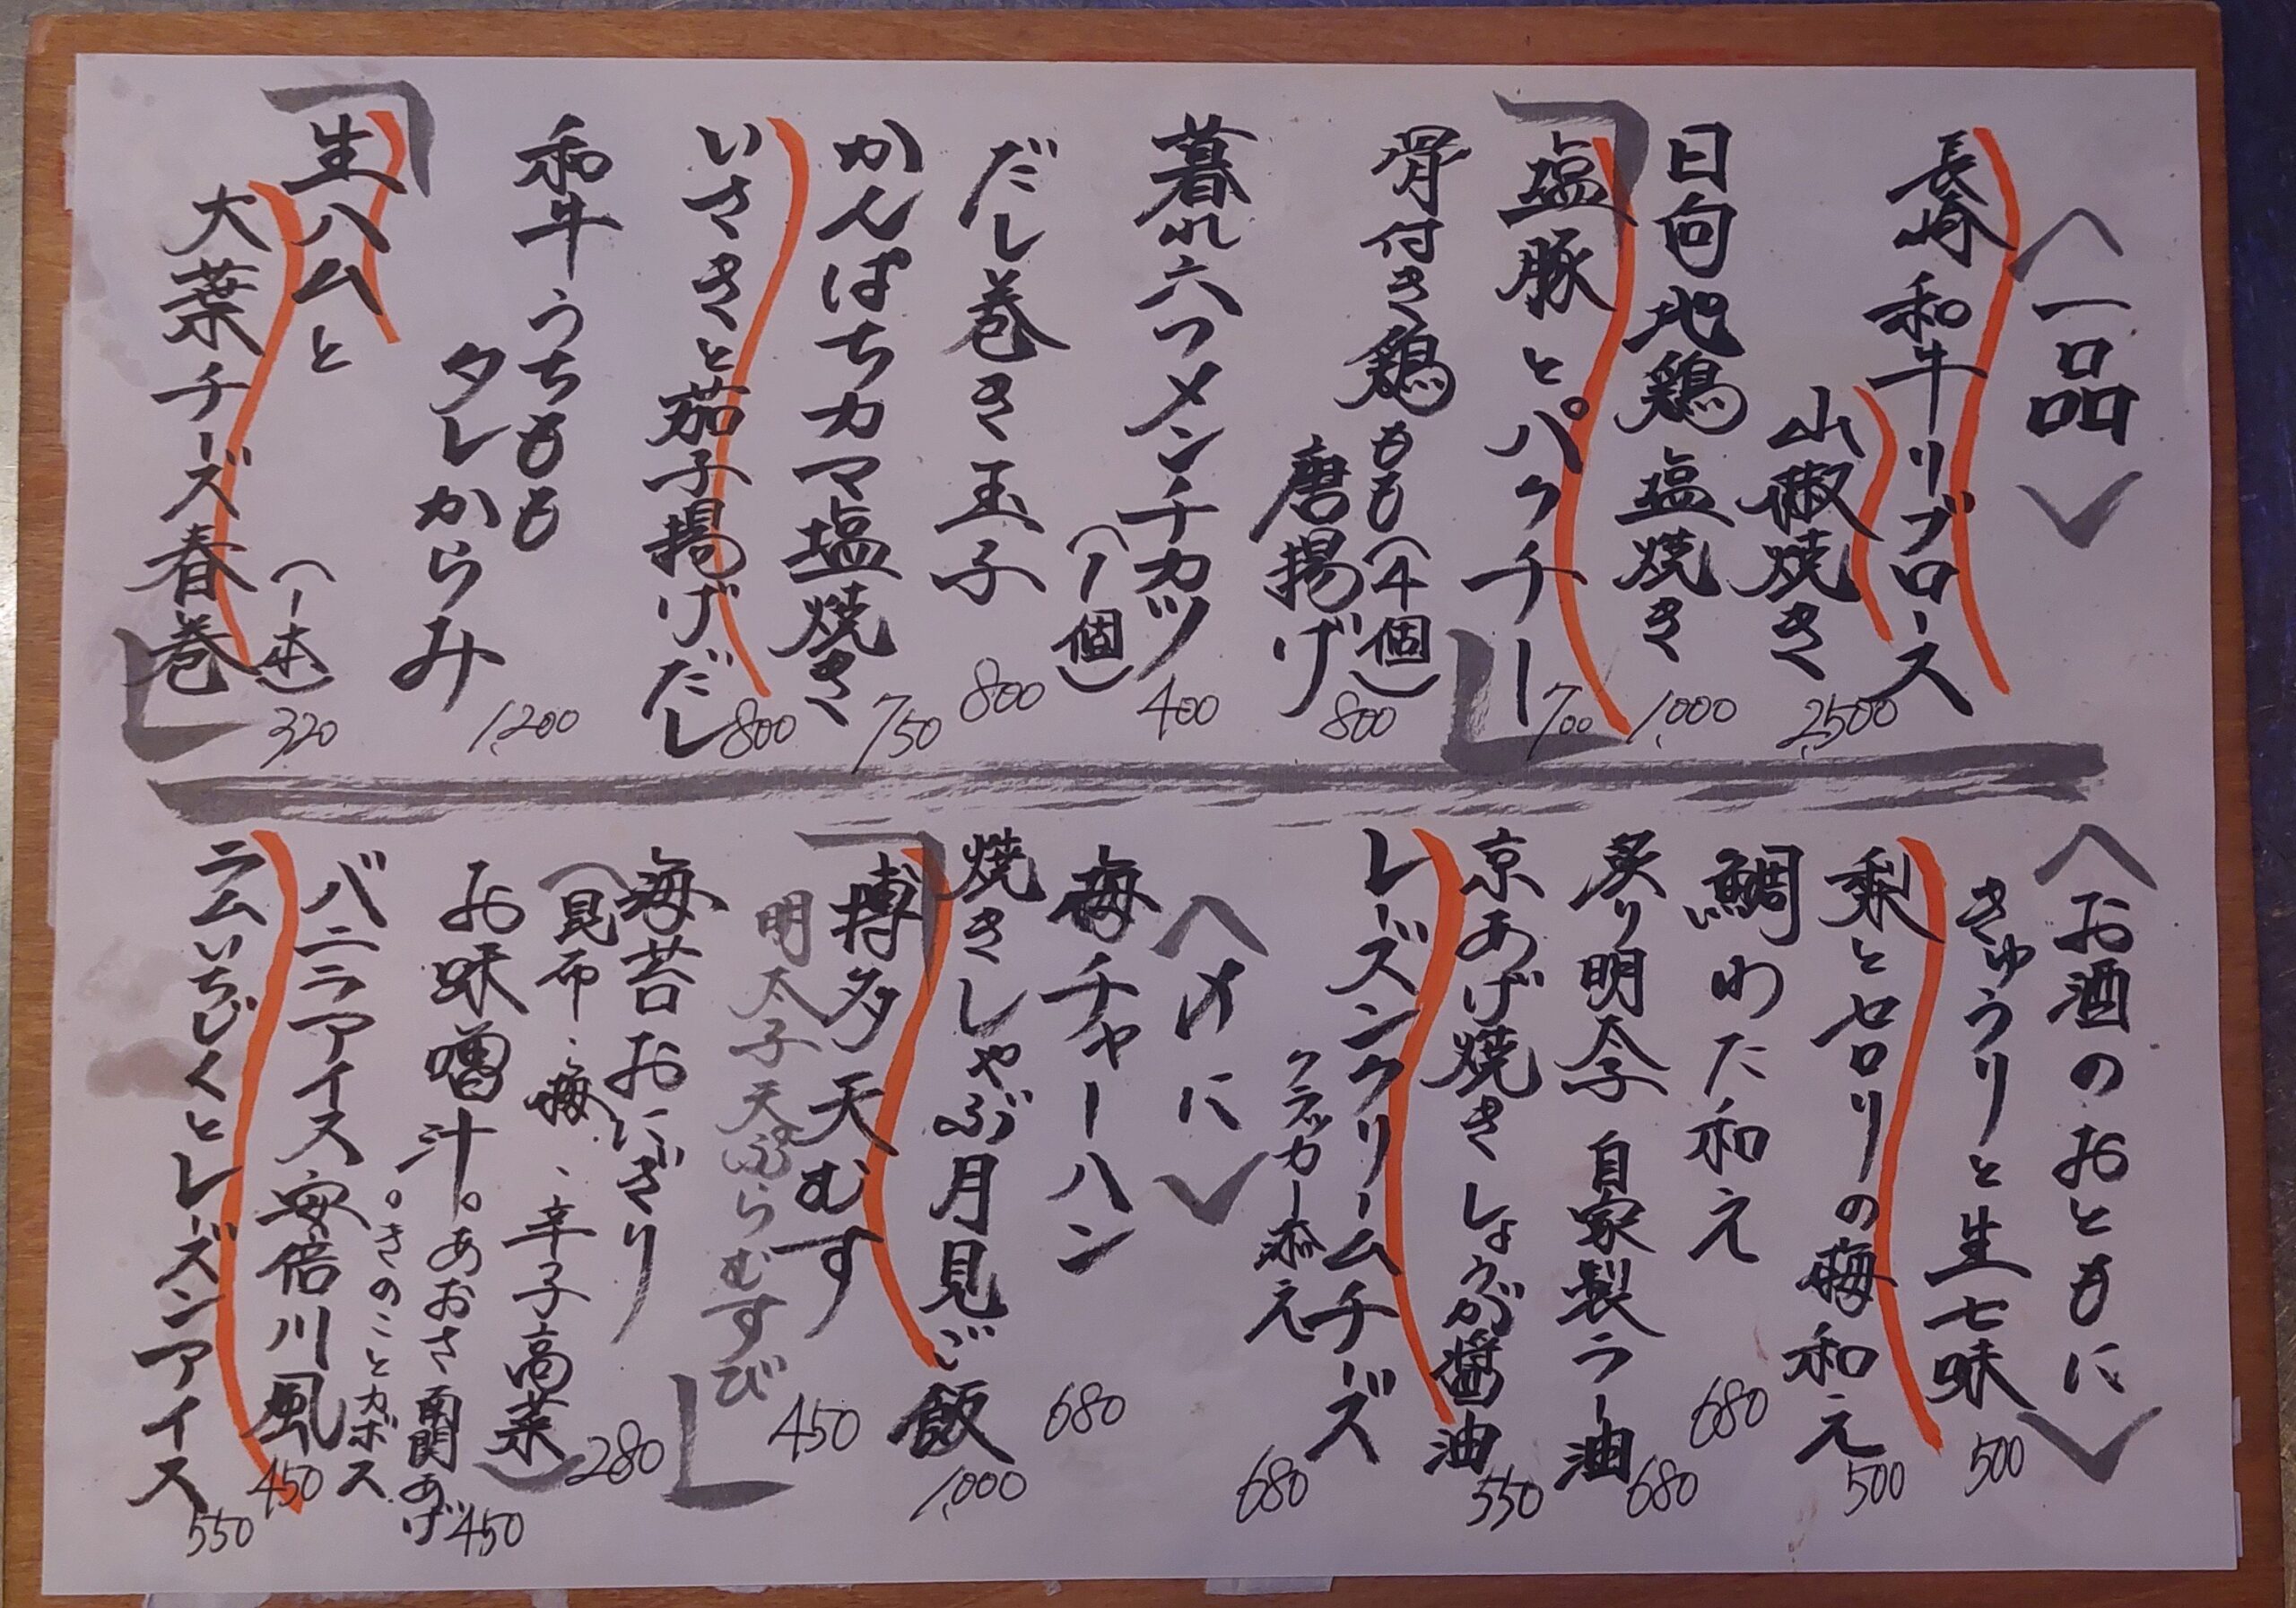 〈一品〉
長崎和牛リブロース
山椒焼き
2,500
日向地鶏塩焼き
1,000
「塩豚とパクチー」
700
骨付き鶏もも(4個)
唐揚げ
800
暮れ六つメンチカツ
(1個)
400
だし巻き玉子
800
かんぱちカマ塩焼き
750
いさきと茄子揚げだし
800
和牛うちもも
タレからみ
1,200
「生ハムと
大葉チーズ春巻」
(一本)
320
〈お酒のおともに〉
きゅうりと生七味
500
梨とセロリの梅和え
500
鯛わた和え
680
炙り明太子 自家製ラー油
680
京あげ焼き しょうが醤油
550
レーズンクリームチーズ
クラッカー添え
680
〈〆に〉
梅チャーハン
680
焼きしゃぶ月見ご飯
1,000
「博多天むす
明太子天ぷらむすび」
450
海苔おにぎり
(昆布、梅、辛子高菜)
280
お味噌汁。あおさ南関あげ
。きのことカボス
450
バニラアイス安倍川風
450
ラムいちじくとレーズンアイス
550